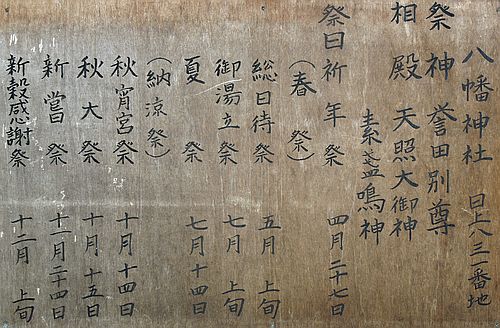 八幡神社 日上八三一番地
祭神 誉田別尊
相殿 天照大御神
素盞鳴神
祭日 祈年祭 四月二十七日
(春祭)
総日待祭 五月上旬
御湯立祭 七月上旬
夏祭 七月十四日
(納涼祭)
秋宵宮祭 十月十四日
秋大祭 十月十五日
新嘗祭 十一月二十四日
新穀感謝祭 十二月上旬